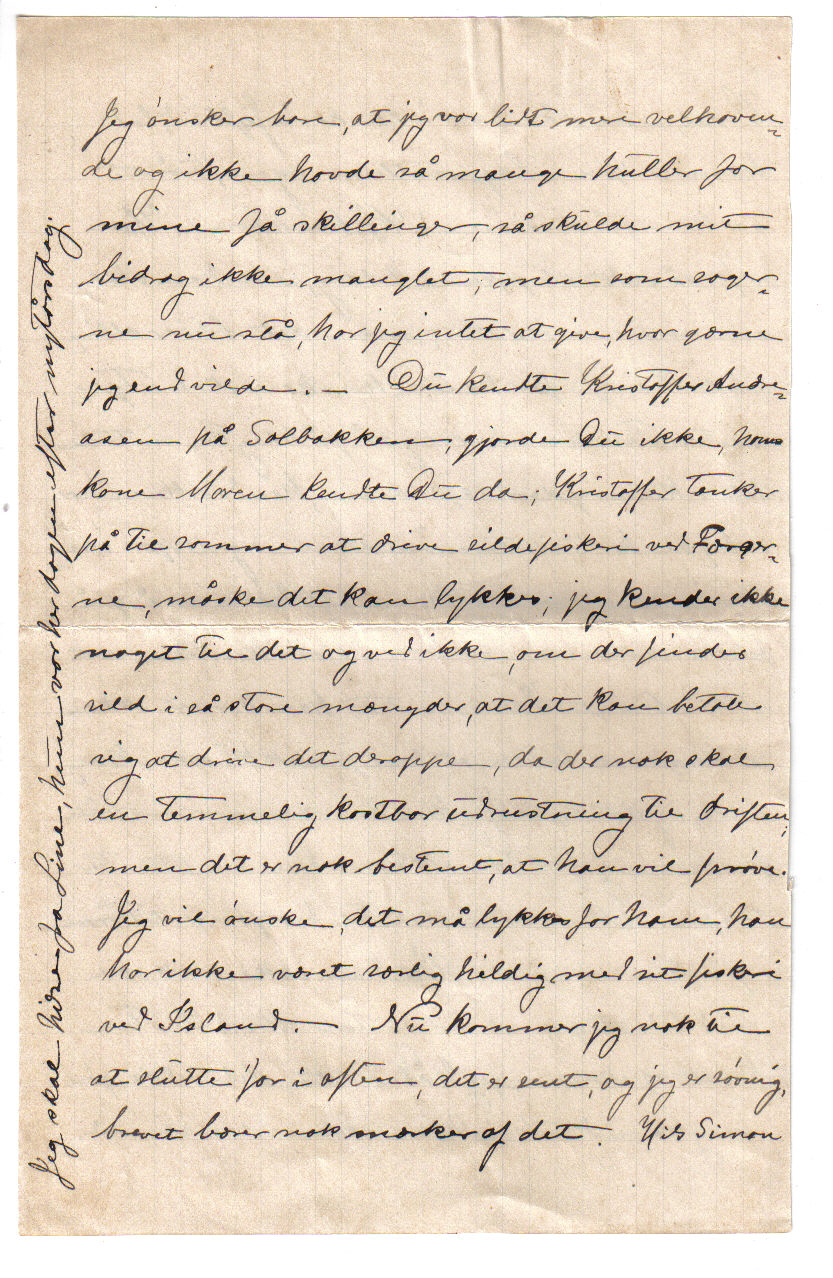 Jeg ønsker bare, at jeg var lidt mere velhaven-
de og ikke havde så mange huller for
mine få skillinger, så skulde mit
bidrag ikke manglet; men som sager-
ne nu stå, har jeg intet at give, hvor gærne
jeg end vilde. — Du kendte Kristoffer Andre-
asen på Solbakken, gjorde Du ikke, hans
kone Maren kendte Du da; Kristoffer tænker
på til sommer at drive sildefiskeri ved Færøer-
ne, måske det kan lykkes; jeg kender ikke
noget til det og ved ikke, om der findes
sild i så store mængder, at det kan betale
sig at drive det deroppe, da der nok skal
en temmelig kostbar udrustning til driften;
men det er nok bestemt, at han vil prøve.
Jeg vil ønske, det må lykkes for ham, han
har ikke været særlig heldig med sit fiskeri
ved Island. — Nu kommer jeg nok til
at slutte for i aften, det er sent, og jeg er søvnig,
brevet bærer nok mærker af det. Hils Simon
Jeg skal hilse fra Line, hun var her dagen efter nytårsdag.